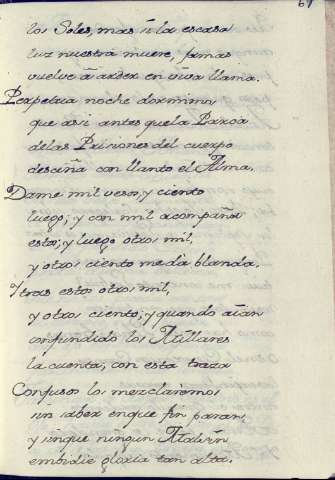 67
los Soles, mas si la escasa
luz nuestra muere, jamas
vuelve à arder en viva llama.
Perpetua noche dormimos
que asi antes que la Parca
de las Prisiones del cuerpo
desciña con llanto el Alma.
Dame mil vesos, y ciento
luego; y con mil acompaña
estos; y luego otros mil,
y otros ciento me dà blanda.
Y tras estos otros mil,
y otros ciento; y quando aian
confundido los Millares
la cuenta, con esta traza
Confusos los mezclaremos
sin saber en que fin paran,
y sin que ningun Malsin
embidie gloria tan alta.